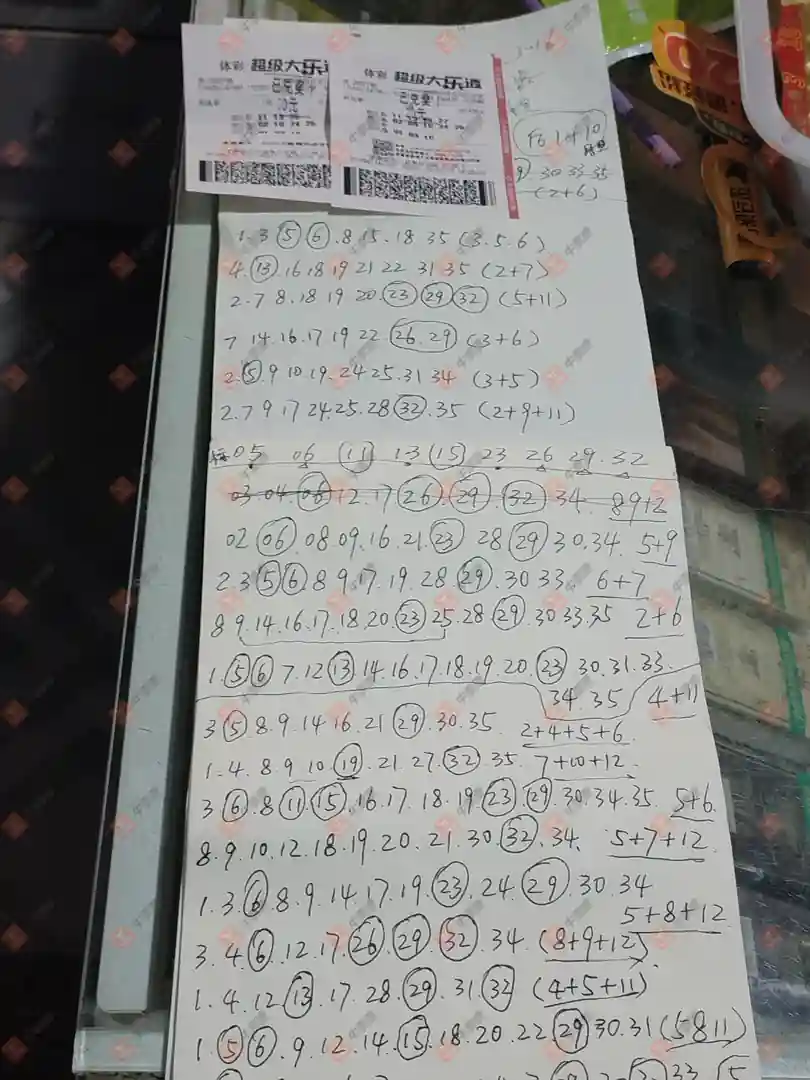 体彩 超级大乐透
体彩 超级大乐透
30 33 35
(2+6)
1.3 5 6 .8 15 .18 35 (3.5.6)
4. 13 .16 18 19 21 22 31 35 (2+7)
2.7 8.18 19 20. 23 29 32 (5+11)
7 14.16.17 19 22 26.29 (3+6)
2. 5 .9 10 19.24 25.31 34 (3+5)
2.7 9 17 24.25.28 32 .35 (2+9+11)
05 06 11 13 15 23 26 29.32
03 04. 06 12.17 26 . 29 . 32 34. 89+2
02 06 08 09.16.21. 23 28 29 30.34. 5+9
2.3 5 6 .8 9.17.19.28 29 .30 33. 6+7
8 9.14.16.17.18.20. 23 25.28 29 .30 33.35 2+6
1. 5 6 7.12 13 14.16.17.18.19.20. 23 30.31.33.
34.35 4+11
3 5 8.9.14 16.21 29 .30.35. 2+4+5+6
1.4.8.9 10. 19 .21.27. 32 .35. 7+10+12
3 6 .8 11 15 .16.17.18.19 23 29 .30.34.35. 5+6
8.9.10.12.18.19.20.21.30. 32 .34. 5+7+12
1.3. 6 .8.9.14.17.19. 23 .24. 29 .30.34
5+8+12
3.4 6 .12.17. 26 . 29 . 32 .34 (8+9+12)
1.4.12 13 .17.28. 29 .31. 32 (4+5+11)
1. 5 6 .9.12.14. 15 .18.20.22. 29 30.31 (5 8 11)